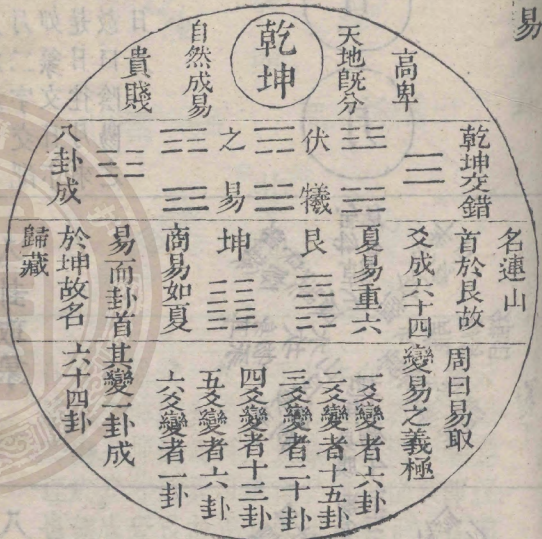 易
乾坤
天地旣分
高卑
自然成易
貴賤
乾坤交錯
伏犧
之易
八卦成
夏易重六
爻成六十四
首於艮故
名連山
艮
坤
商易如夏
易而卦首
於坤故名
歸藏
周曰易取
變易之義極
一爻變者六卦
二爻變者十五卦
三爻變者二十卦
四爻變者十三卦
五爻變者六卦
六爻變者一卦
其變一卦成
六十四卦